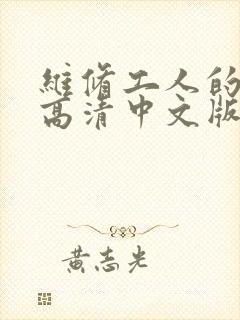 維修工人的
高清中文版
黃志光